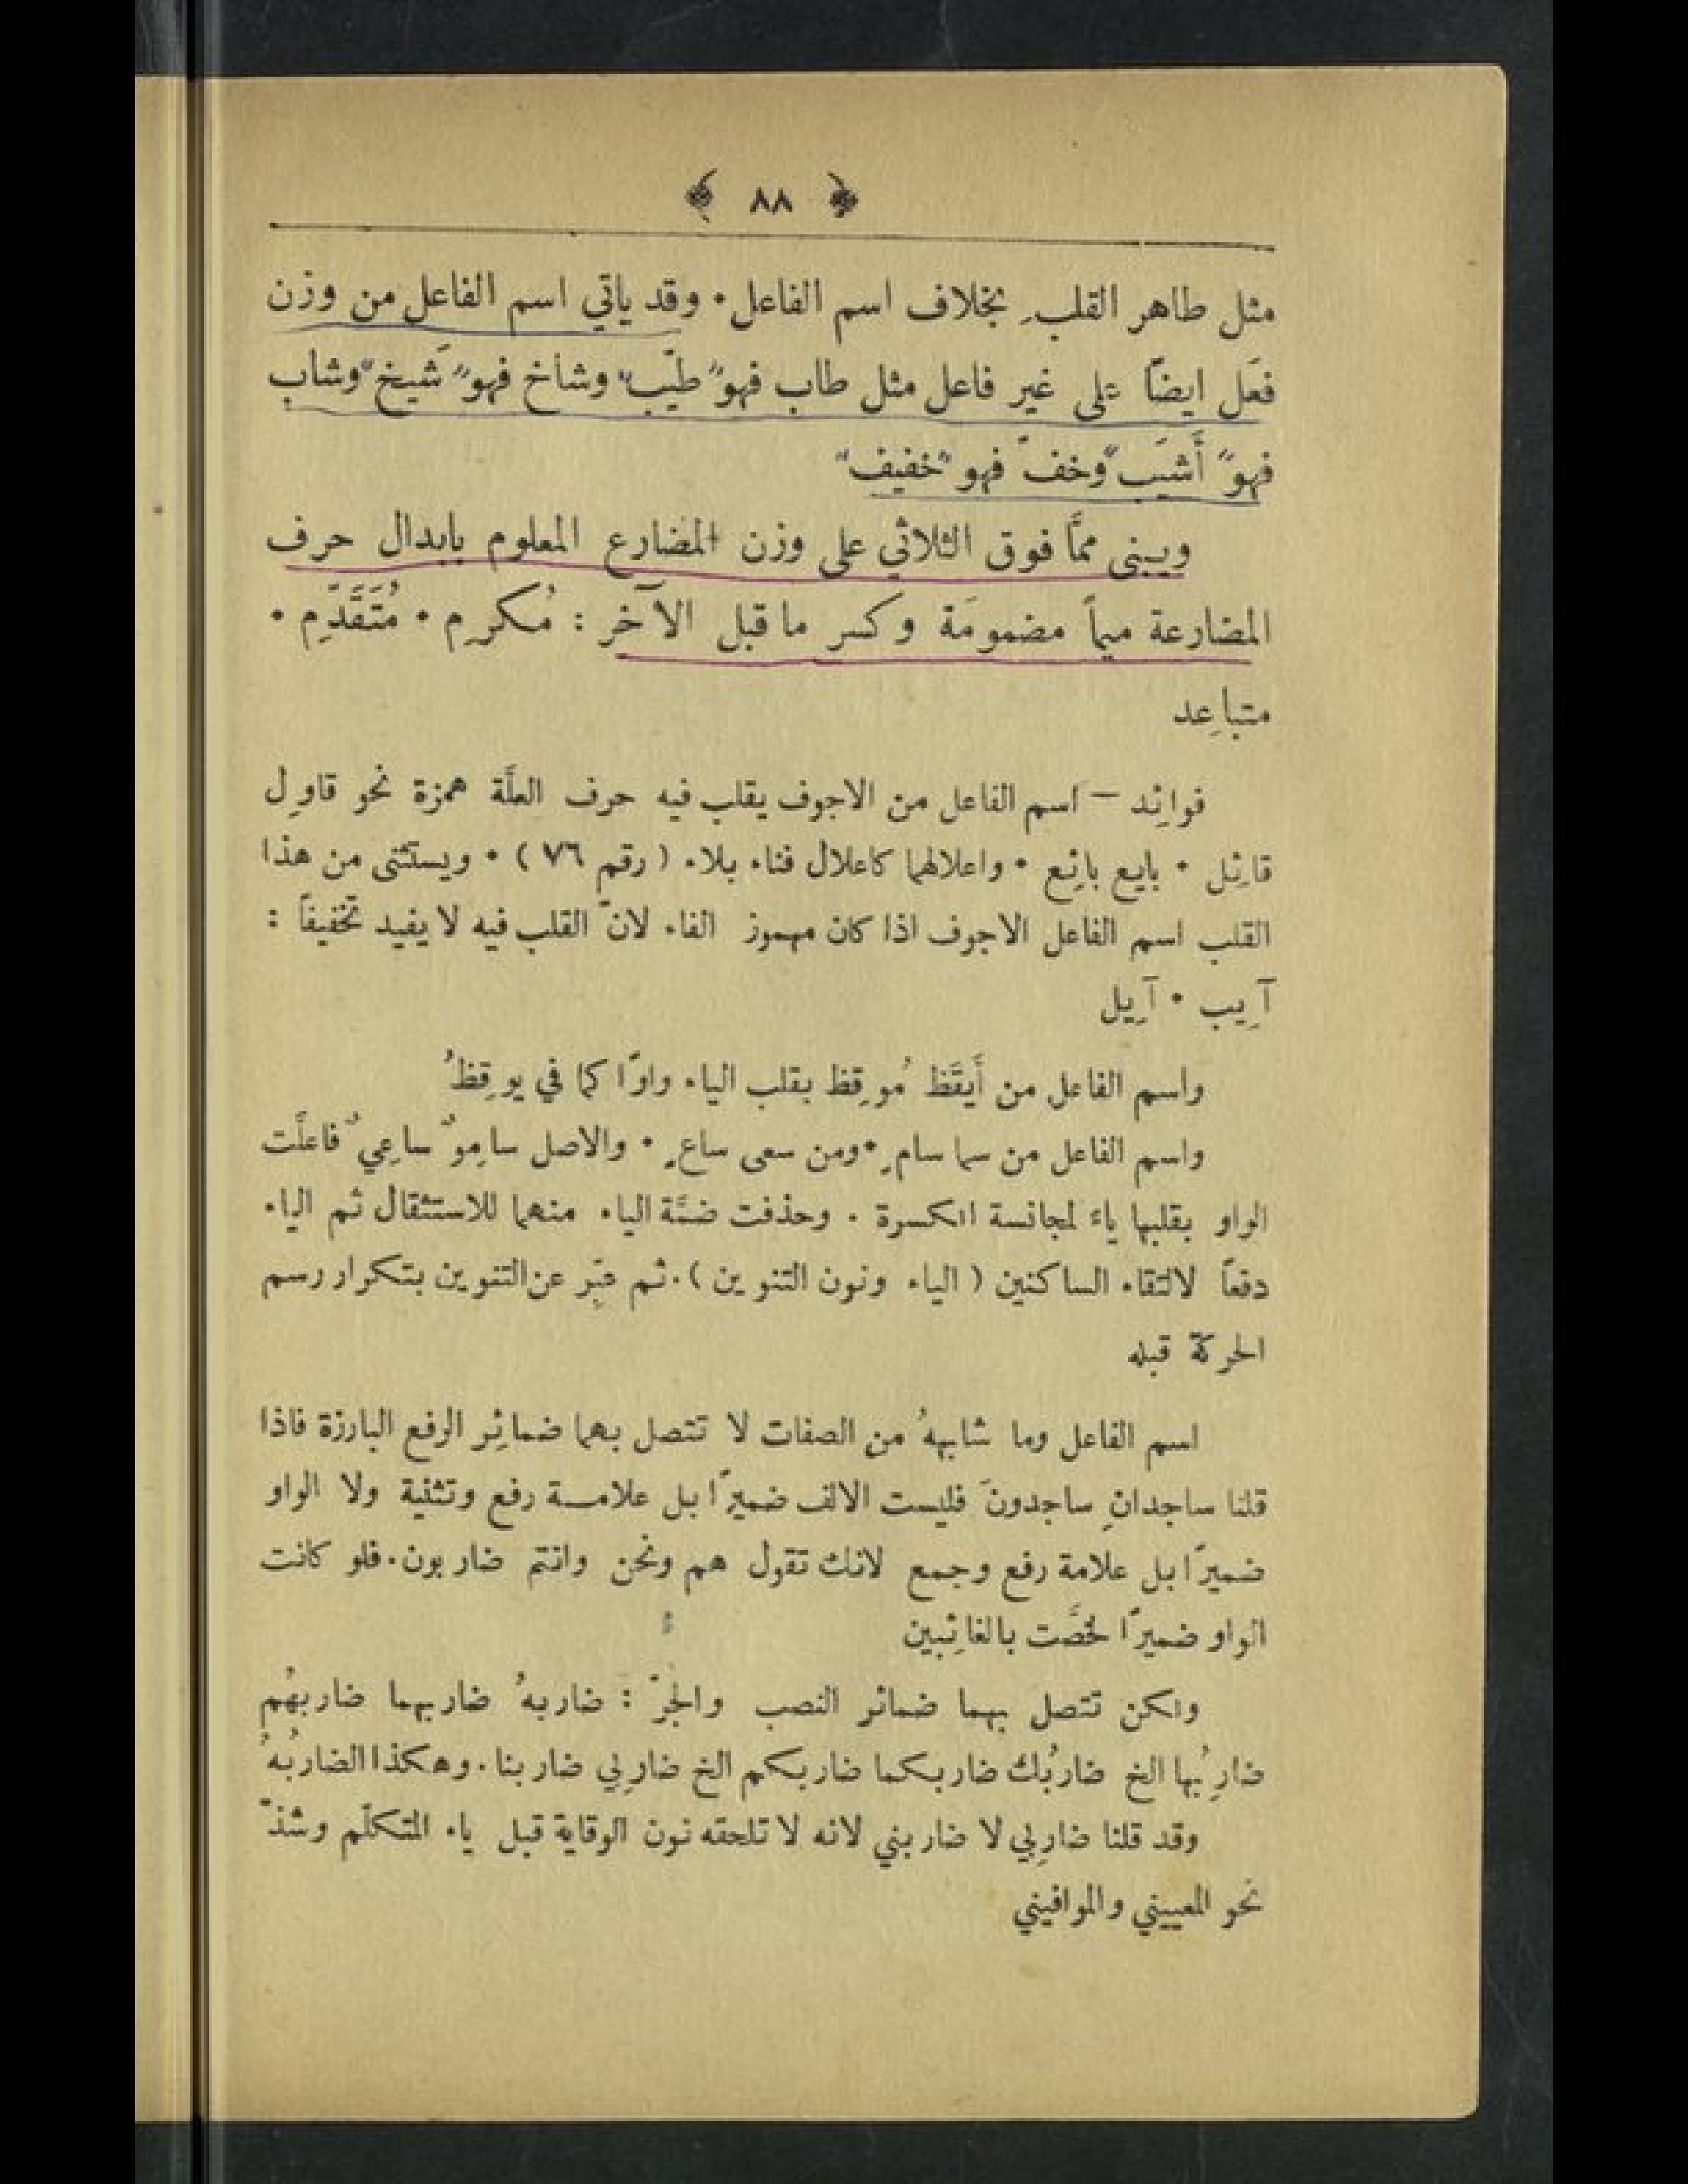 ﴿ ٨٨ ﴾
مثل طاهر القلبِ بخلاف اسم الفاعل • وقد ياتي اسم الفاعل من وزن
فعَل ايضاً على غير فاعل مثل طاب فهو "طيّب" وشاخ فهو "شَيخ" وشاب
فهو "أَشيَب" وخفّ فهو "خفيف"
ويبنى ممَّا فوق الثلاثي على وزن المضارع المعلوم بابدال حرف
المضارعة ميماً مضمومَة وكسر ما قبل الآخِر : مُكرِم • مُتَقَدِّم •
متباعِد
فوائِد – اسم الفاعل من الاجوف يقلب فيه حرف العلَّة همزة نحو قاوِل
قائِل • بايِع بائِع • واعلالهما كاعلال فناء بلاء ( رقم ٧٦ ) • ويستثنى من هذا
القلب اسم الفاعل الاجوف اذا كان مهموز الفاء لانّ القلب فيه لا يفيد تخفيفاً :
آيِب • آيِل
واسم الفاعل من أَيقَظ مُوقِظ بقلب الياء واوًا كما في يوقِظُ
واسم الفاعل من سما سامٍ • ومن سعى ساعٍ • والاصل سامِوٌ ساعِيٌ فاعلَّت
الواو بقلبها ياءً لمجانسة الكسرة . وحذفت ضمَّة الياء منهما للاستثقال ثم الياء
دفعاً لالتقاء الساكنين ( الياء ونون التنوين ) . ثم عبِّر عن التنوين بتكرار رسم
الحركة قبله
اسم الفاعل وما شابههُ من الصفات لا تتصل بهما ضمائِر الرفع البارزة فاذا
قلنا ساجدانِ ساجدونَ فليست الالف ضميرًا بل علامـة رفع وتثنية ولا الواو
ضميرًا بل علامة رفع وجمع لانك تقول هم ونحن وانتم ضاربون . فلو كانت
الواو ضميرًا لخصَّت بالغائِبين
ولكن تتصل بهما ضمائر النصب والجرّ : ضاربهُ ضاربهما ضاربهُم
ضارِبُها الخ ضاربُك ضاربكما ضاربكم الخ ضارِبي ضاربنا . وهكذا الضاربُهُ
وقد قلنا ضارِبي لا ضاربني لانه لا تلحقه نون الوقاية قبل ياء المتكلّم وشذّ
نحو المعييني والموافيني